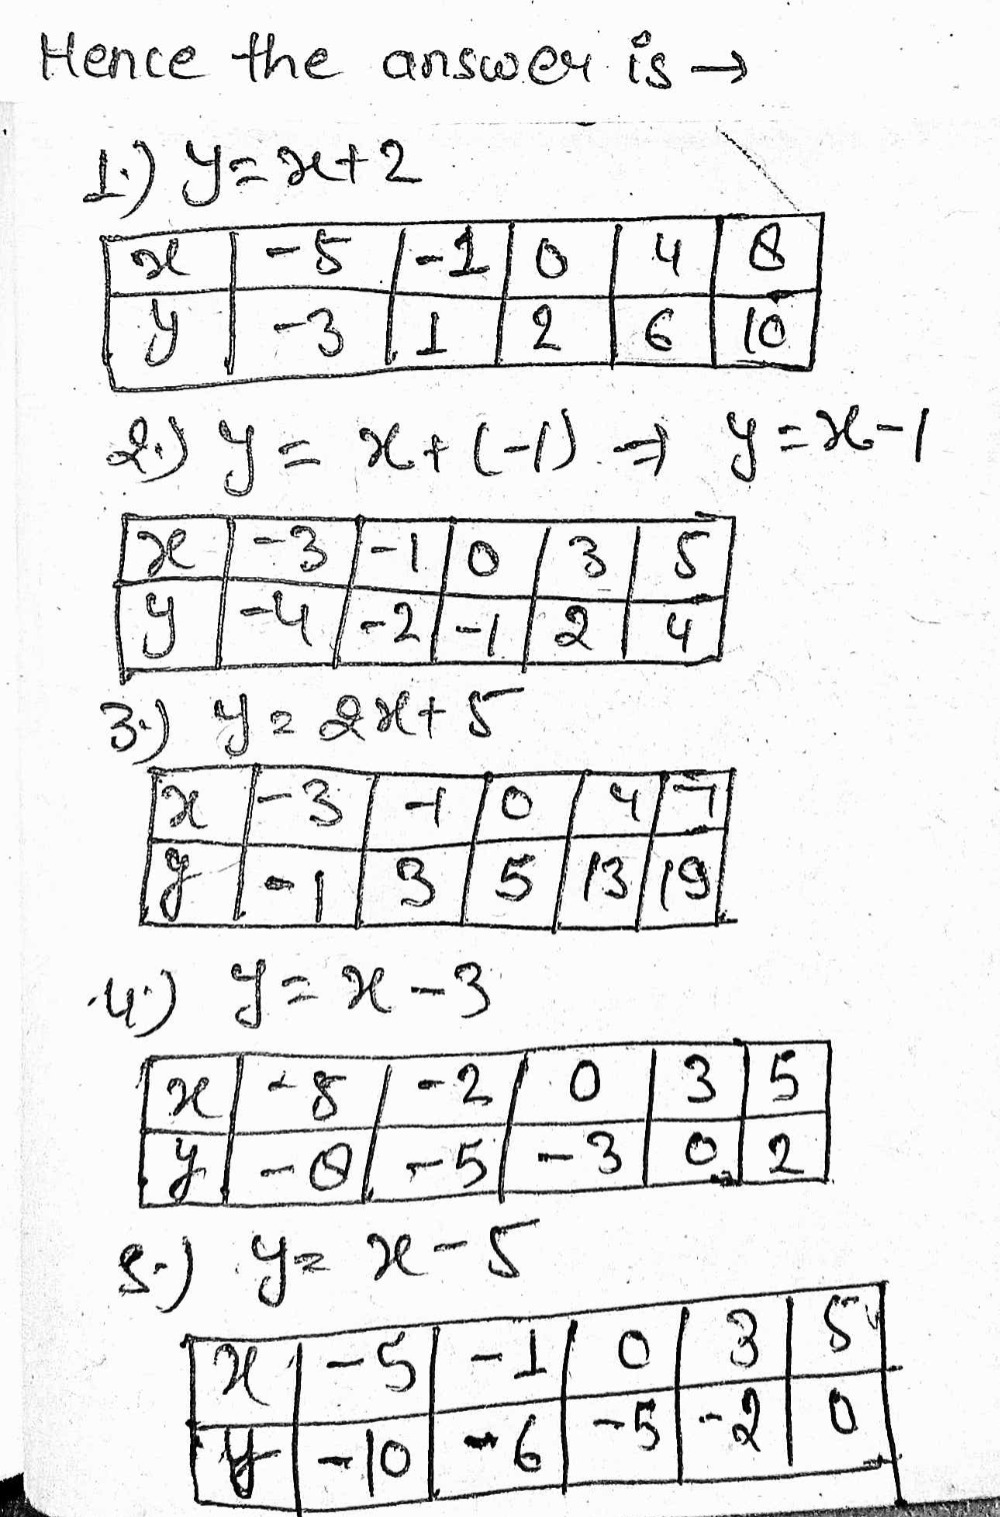 Hence the answer is →
1.) y = x+2
x -5 -1 0 4 8
y -3 1 2 6 10
2.) y = x+(-1) ⇒ y = x-1
x -3 -1 0 3 5
y -4 -2 -1 2 4
3.) y = 2x+5
x -3 -1 0 4 7
y -1 3 5 13 19
4.) y = x-3
x -5 -2 0 3 5
y -8 -5 -3 0 2
5.) y = x-5
x -5 -1 0 3 5
y -10 -6 -5 -2 0